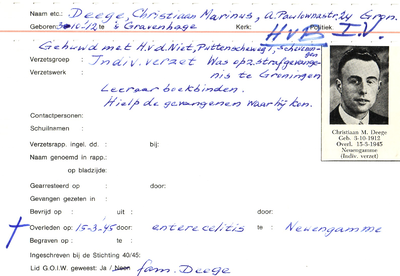 Naam etc.: Deege, Christiaan Marinus, a. Paulownastr. 24 Gron.
Geboren: 3-10-12 te 's Gravenhage Kerk: Politiek
H.v.B. I.V.
Gehuwd met H.v.d. Niet, Puttenscheweg 1, Scheveningen
Verzetsgroep : Indiv. verzet Was opz. strafgevange-
Verzetswerk nis te Groningen
Leeraar boekbinden.
Hielp de gevangenen waar hij kon.
Contactpersonen:
Schuilnamen :
Verzetsrapp. ingel. dd. : bij:
Naam genoemd in rapp.:
op bladzijde:
Gearresteerd op : door:
Gevangen gezeten in :
Bevrijd op : uit : door:
Overleden op : 15-3-45 door: enterecelitis te : Neuengamme
Begraven op : te :
Ingeschreven bij de Stichting 40/45:
Lid G.O.I.W. geweest: Ja / Neen fam. Deege
Christiaan M. Deege
Geb. 3-10-1912
Overl. 15-3-1945
Neuengamme
(Indiv. verzet)